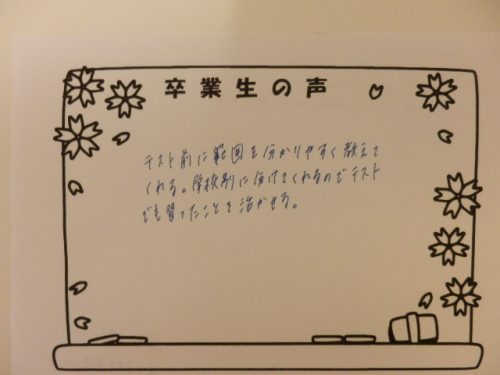 卒業生の声
テスト前に範囲を分かりやすく教えて
くれる。学校別に分けてくれるのでテスト
でも習ったことを活かせる。